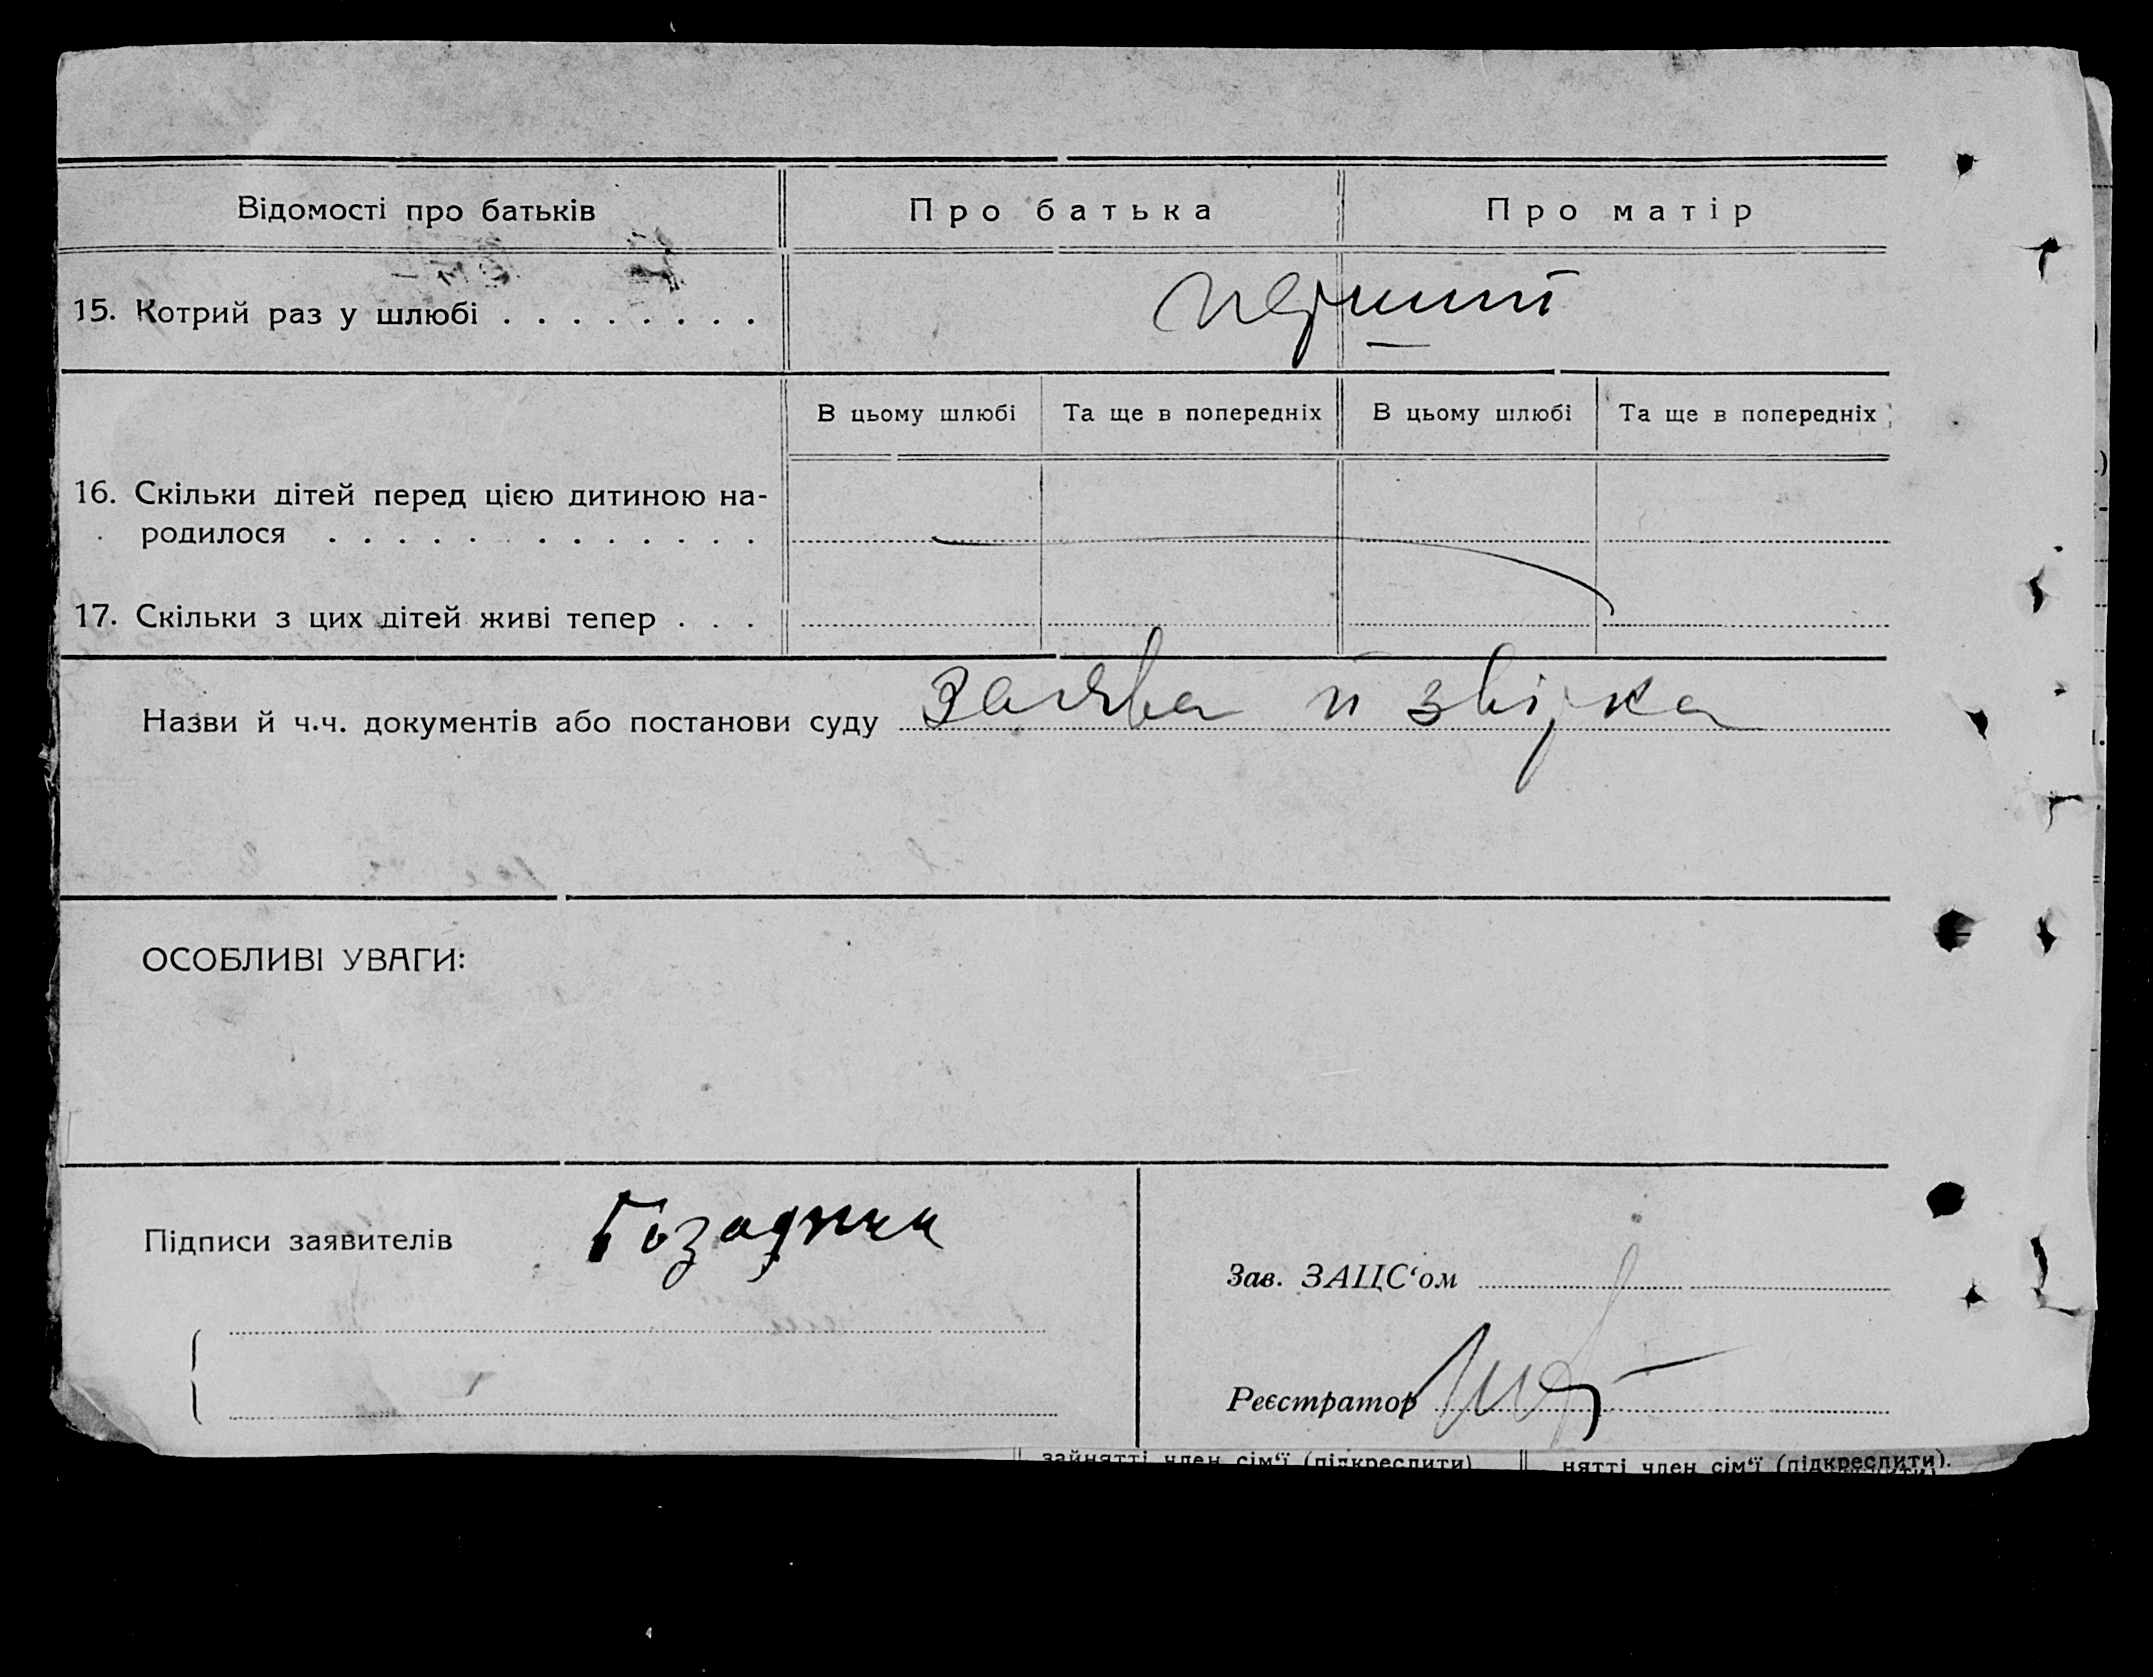 Відомості про батьків
Про батька
Про матір
15. Котрий раз у шлюбі . . . . . . . .
перший
В цьому шлюбі
Та ще в попередніх
В цьому шлюбі
Та ще в попередніх
16. Скільки дітей перед цією дитиною на-
родилося . . . . . . . . . . . . .
17. Скільки з цих дітей живі тепер . . .
Назви й ч.ч. документів або постанови суду заява й звірка
ОСОБЛИВІ УВАГИ:
Підписи заявителів
Зав. ЗАЦС‘ом
Реєстратор
зайнятті член сім‘ї (підкреслити)
нятті член сім‘ї (підкреслити).